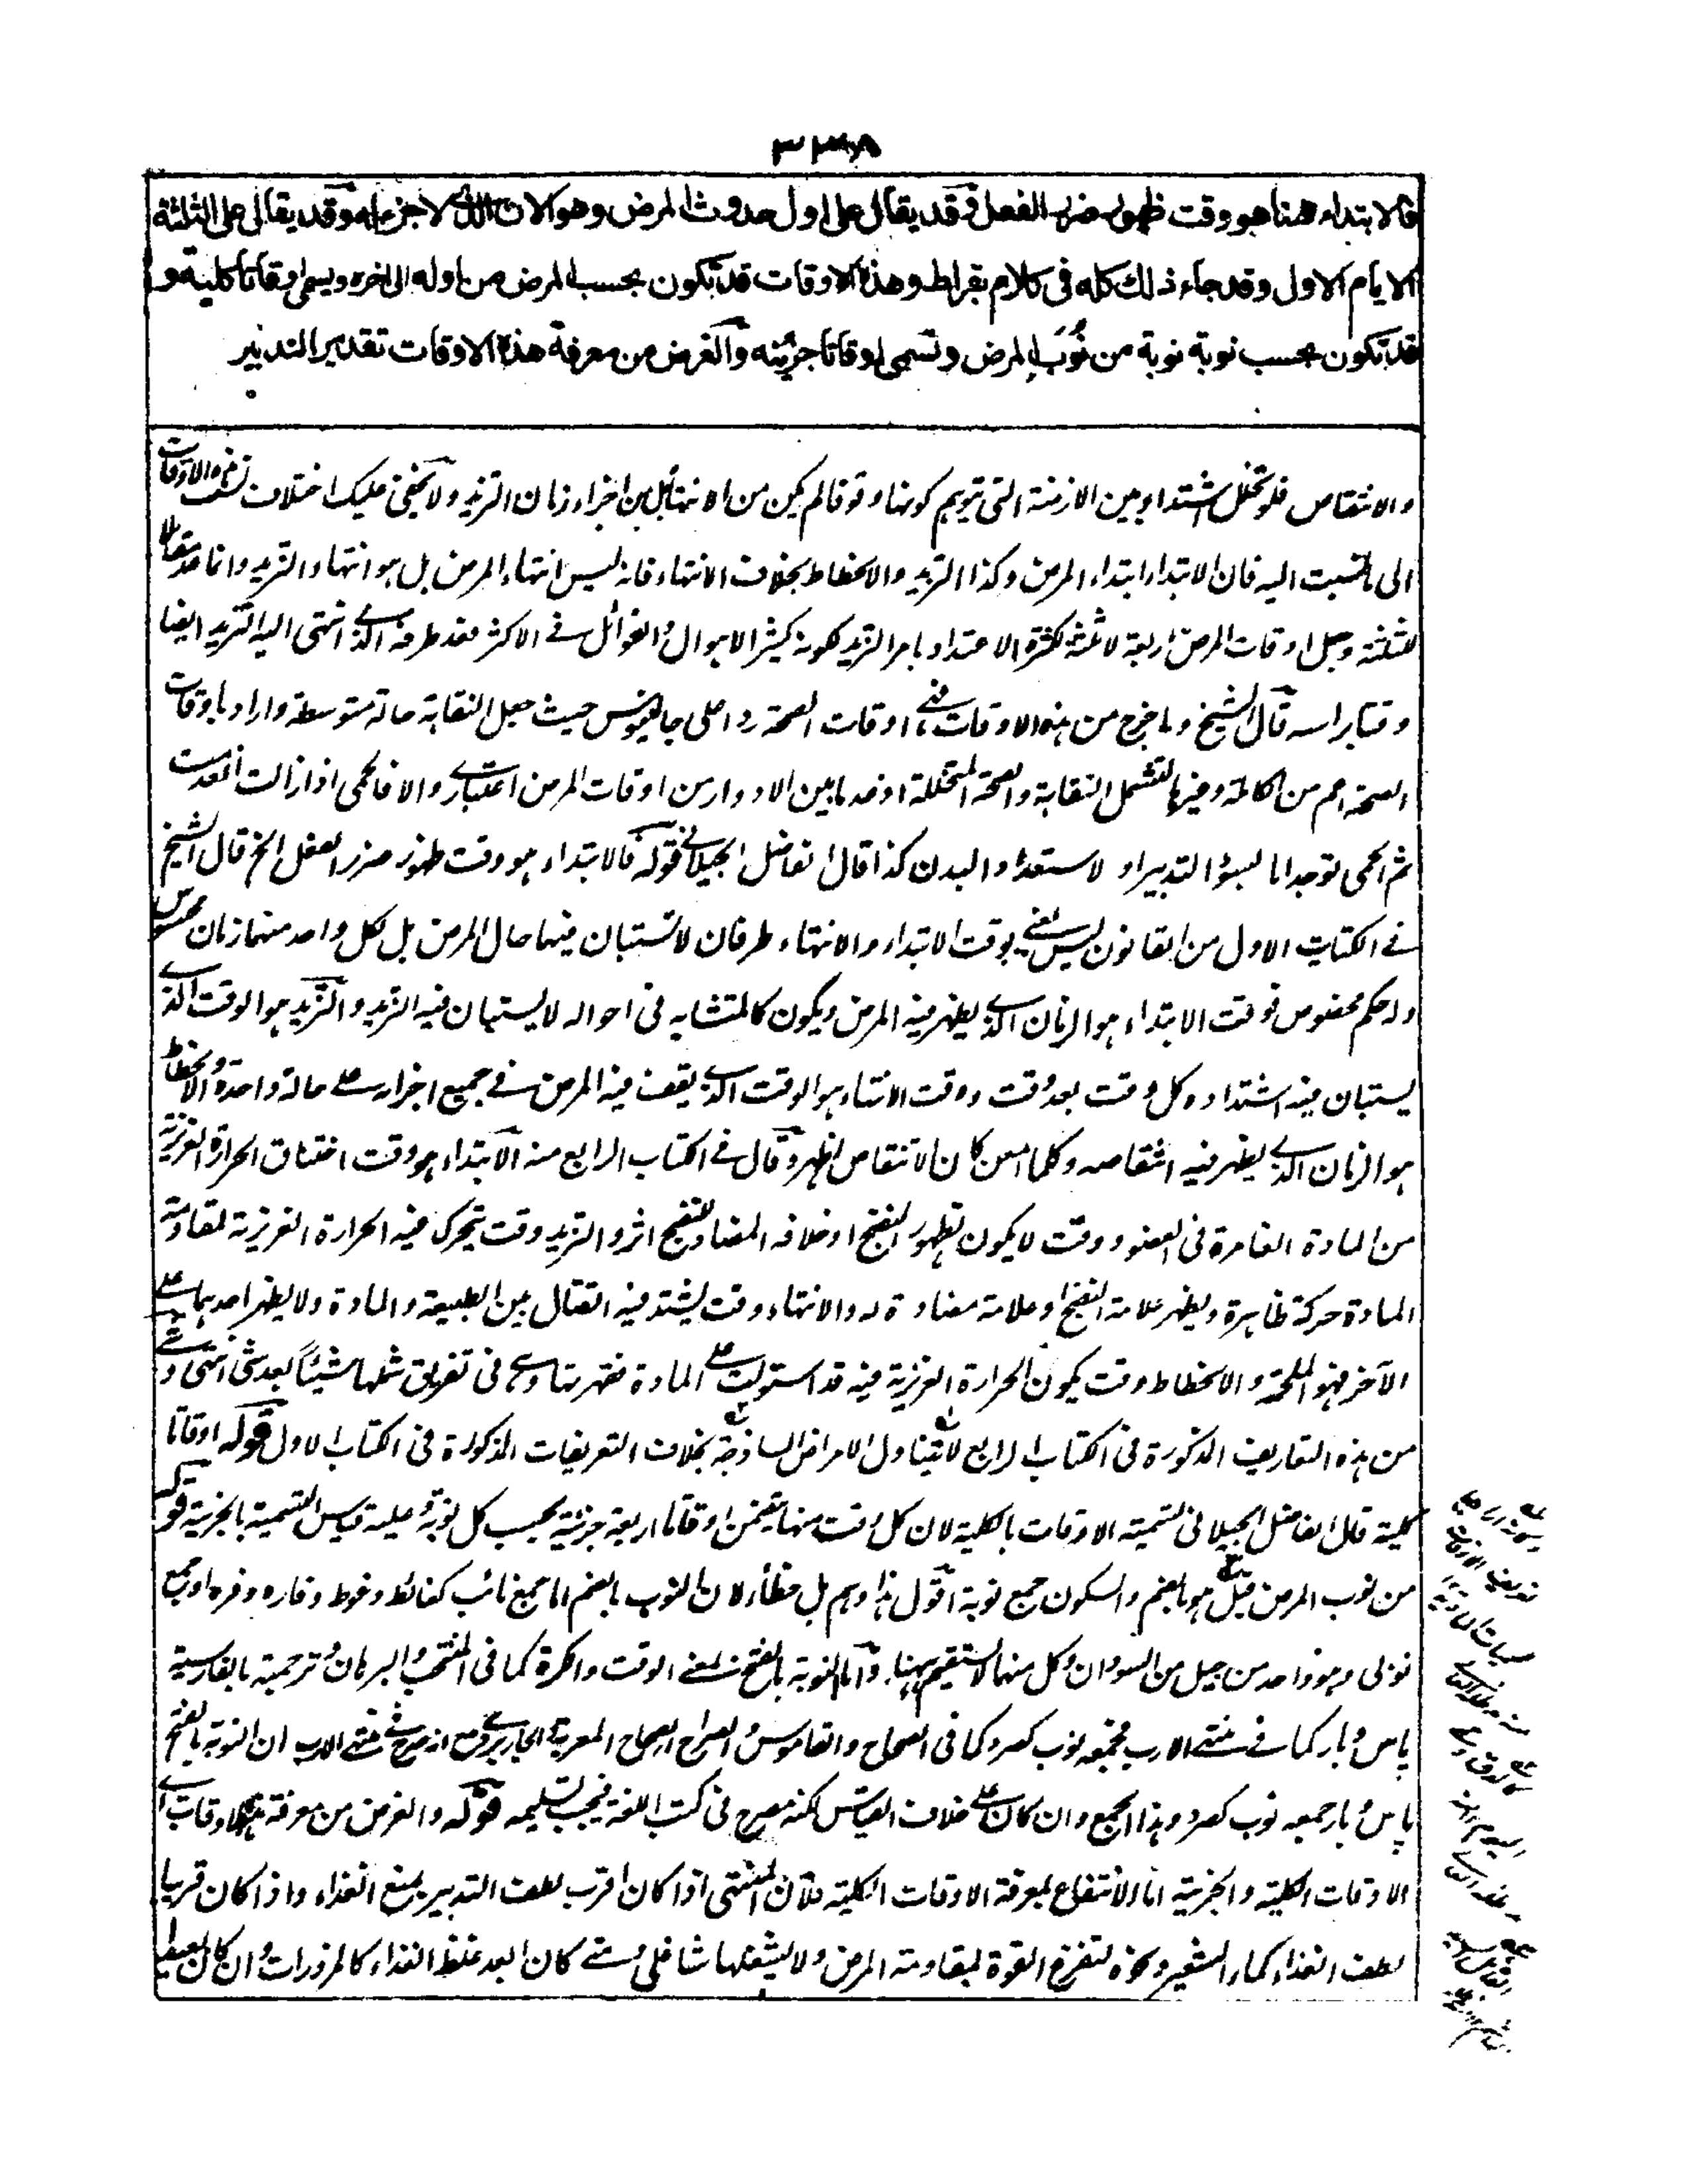 ٣٣٨
فالابتداء ههنا هو وقت ظهور ضرر الفعل وقد يقال على اول حدوث المرض وهو الآن الذى لا جزء له وقد يقال على الثلثة
الايام الاول وقد جاء ذلك كله فى كلام بقراط وهذه الاوقات قد تكون بحسب المرض من اوله الى اخره ويسمى اوقاتا كلية و
قد تكون بحسب نوبة نوبة من نُوَب المرض وتسمى اوقاتا جزئية والغرض من معرفة هذه الاوقات تقدير التدبير
والانتقاص فلو تخلل اشتداد بين الازمنة التى يتوهم كونها وقوفا لم يكن من الانتهاء بل من اجزاء زمان التزيد ولا يخفى عليك اختلاف هذه الاوقات
الى ما نسبت اليه فان الابتداء ابتداء المرض وكذا التزيد والانحطاط بخلاف الانتهاء فانه ليس انتهاء المرض بل هو انتهاء التزيد وانما
وجعل اوقات المرض اربعة لا ثلثة لكثرة الاعتداد بامر التزيد لكونه كثير الاهوال والغوائل فى الاكثر فعد طرفه الذى انتهى اليه التزيد ايضا
وقتا براسه قال الشيخ وما خرج من هذه الاوقات فهى اوقات الصحة رد على جالينوس حيث جعل النقاهة حالة متوسطة واراد باوقات
الصحة اعم من الكاملة وغيرها لتشمل النقاهة والصحة المتخللة اذ عد ما بين الادوار من اوقات المرض اعتبارى والا فالحمى اذا زالت انعدمت
ثم الحمى توجد اما لسوء التدبير او لاستعداد البدن كذا قال الفاضل الجيلانى قوله فالابتداء هو وقت ظهور ضرر الفعل الخ قال الشيخ
فى الكتاب الاول من القانون ليس نعنى بوقت الابتداء والانتهاء طرفان لا تستبان فيهما حال المرض بل لكل واحد منهما زمان محسوس
وله حكم مخصوص فوقت الابتداء هو الزمان الذى يظهر فيه المرض ويكون كالمتشابه فى احواله لا يستبان فيه التزيد والتزيد هو الوقت الذى
يستبان فيه اشتداده كل وقت بعد وقت ووقت الانتهاء هو الوقت الذى يقف فيه المرض فى جميع اجزائه على حالة واحدة والانحطاط
هو الزمان الذى يظهر فيه انتقاصه وكلما امعن كان الانتقاص اظهر وقال فى الكتاب الرابع منه الابتداء هو وقت اختناق الحرارة الغريزية
من المادة الغامرة فى العضو ووقت لا يكون لظهور النضج او خلافه المضاد للنضج اثر والتزيد وقت يتحرك فيه الحرارة الغريزية لمقاومة
المادة حركة ظاهرة ويظهر علامة النضج او علامة مضادة له والانتهاء وقت يشتد فيه القتال بين الطبيعة والمادة ولا يظهر احدهما على
الآخر فهو الملحمة والانحطاط وقت يكون الحرارة الغريزية فيه قد استولت على المادة فقهرتها وهى فى تفريق شملها شيئا بعد شئ انتهى و
من هذه التعاريف المذكورة فى الكتاب الرابع لا يتناول الامراض الساذجة بخلاف التعريفات المذكورة فى الكتاب الاول قوله اوقاتا
كلية قال الفاضل الجيلانى تسمية الاوقات بالكلية لان كل وقت منها يتضمن اوقاتا اربعة جزئية بحسب كل نوبة وعليه قياس التسمية بالجزئية قوله
من نوب المرض قيل هو بالضم والسكون جمع نوبة اقول هذا وهم بل خطأ لان النوب بالضم اما جمع نائب كغائط وغوط وفاره وفره او جمع
نوبى وهو واحد من جيل من السودان وكل منهما لا يستقيم ههنا واما النوبة بالفتح بمعنى الوقت والكرة كما فى المنتخب والبرهان وترجمته بالفارسية
پاس وبار كما فى منتهى الارب فجمعه نوب كصرد كما فى الصحاح والقاموس والصراح المعربة انه صرح فى منتهى الارب ان النوبة بالفتح
پاس وبار جمعه نوب كصرد وهذا الجمع وان كان على خلاف القياس لكنه مصرح فى كتب اللغة فيجب تسليمه قوله والغرض من معرفة هذه الاوقات اى
الاوقات الكلية والجزئية اما الانتفاع بمعرفة الاوقات الكلية فلأن المنتهى اذا كان اقرب لطف التدبير بمنع الغذاء واذا كان قريبا
لطف الغذاء كماء الشعير ونحوه لتفرغ القوة لمقاومة المرض ولا يشغلها شاغل ومتى كان ابعد غلظ الغذاء كالمزورات وان كان